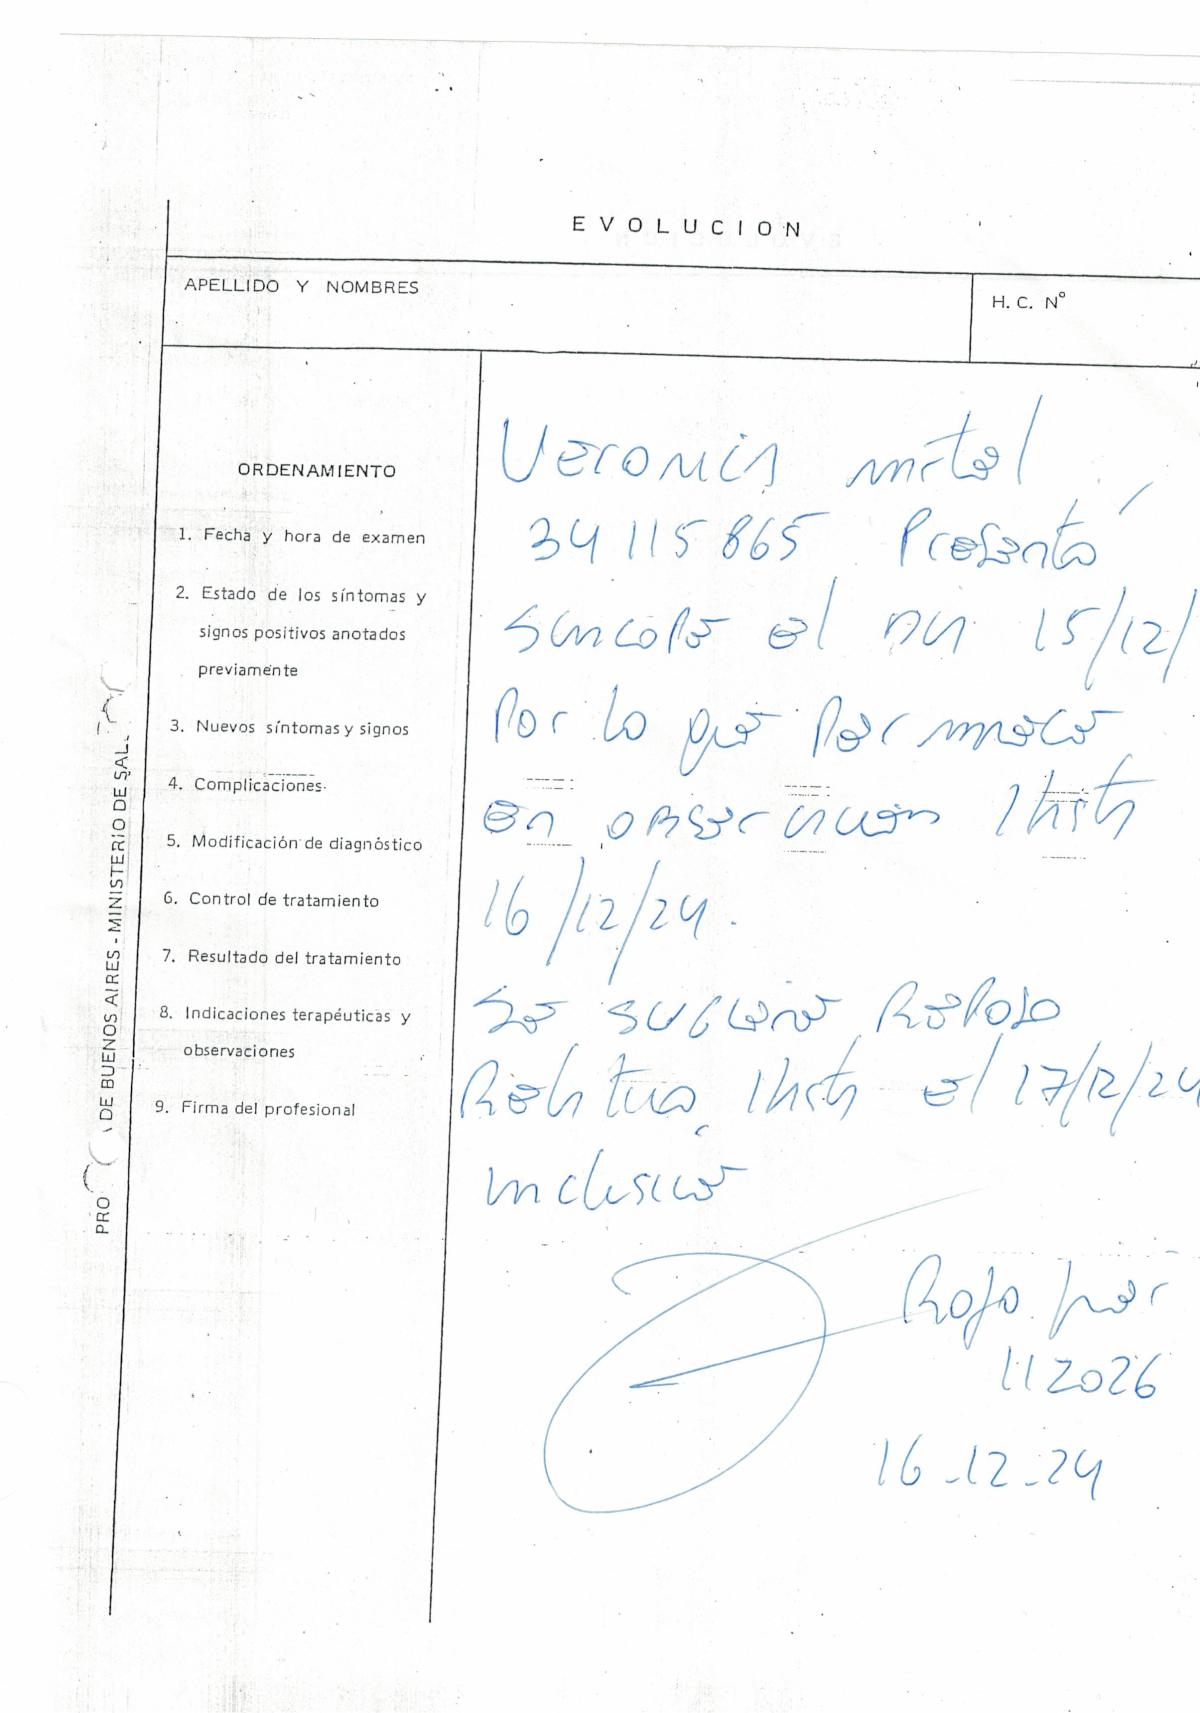 EVOLUCION
APELLIDO Y NOMBRES
H. C. Nº
ORDENAMIENTO
1. Fecha y hora de examen
2. Estado de los síntomas y
signos positivos anotados
previamente
3. Nuevos síntomas y signos
4. Complicaciones
5. Modificación de diagnóstico
6. Control de tratamiento
7. Resultado del tratamiento
8. Indicaciones terapéuticas y
observaciones
9. Firma del profesional
DE BUENOS AIRES - MINISTERIO DE SAL
Veronica
34115865 Presenta
sincope el dia 15/12/
Por lo que permanece
en observacion hasta
16/12/24.
Se sugiere Reposo
hasta el 17/12/24
inclusive
Rojo
112026
16-12-24